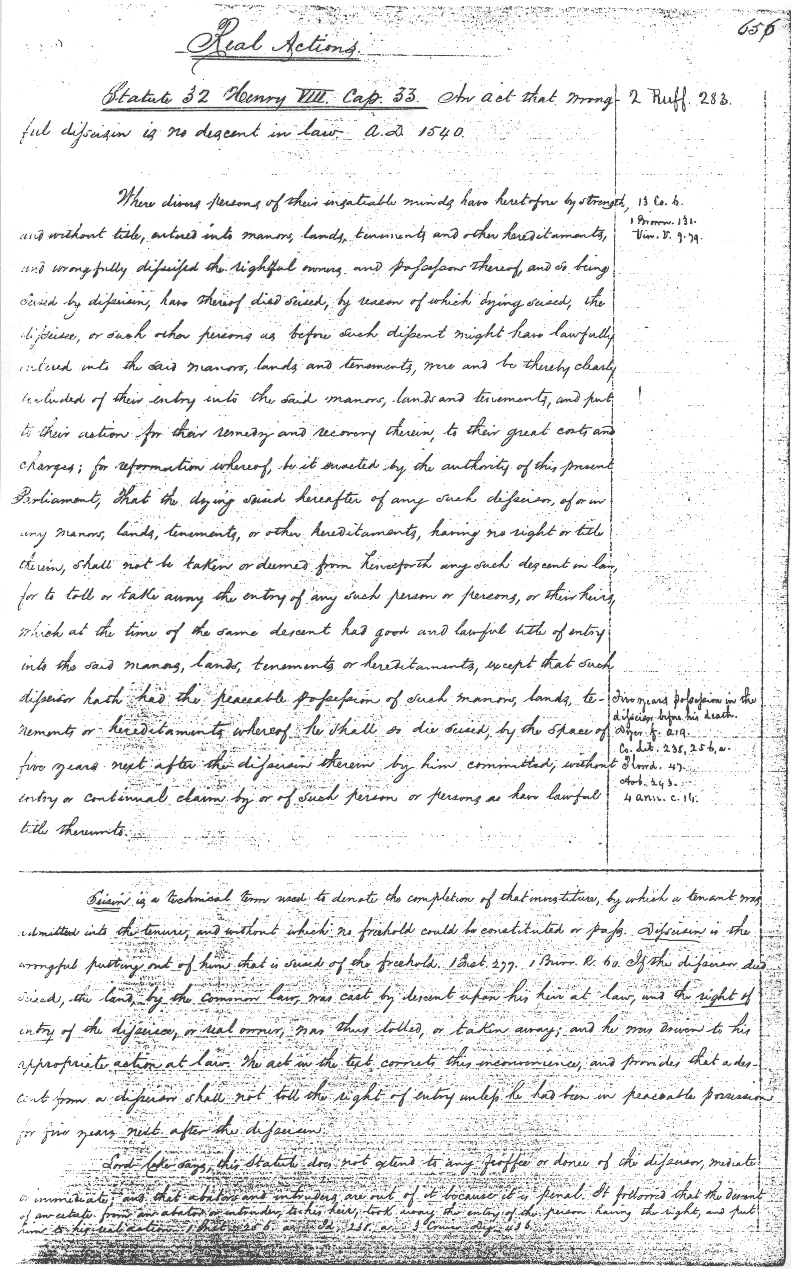 656
Real Actions.
Statute 32 Henry VIII. Cap. 33. An act that wrong-
2 Ruff. 283.
ful disseisin is no descent in law. A.D. 1540.
Where divers persons of their insatiable minds have heretofore by strength,
13 Co. 6.
and without title, entered into manors, lands, tenements and other hereditaments,
1 Brown. 131.
Vin. V. 9. 79.
and wrongfully disseised the rightful owners and possessors thereof, and so being
seised by disseisin, have thereof died seised, by reason of which dying seised, the
disseisee, or such other persons as before such dissent might have lawfully
entered into the said manors, lands and tenements, were and be thereby clearly
excluded of their entry into the said manors, lands and tenements, and put
to their action for their remedy and recovery therein, to their great costs and
charges; for reformation whereof, be it enacted by the authority of this present
Parliament, That the dying seised hereafter of any such disseisor, of or in
any manors, lands, tenements, or other hereditaments, having no right or title
therein, shall not be taken or deemed from henceforth any such descent in law,
for to toll or take away the entry of any such person or persons, or their heirs,
which at the time of the same descent had good and lawful title of entry
into the said manors, lands, tenements or hereditaments, except that such
disseisor hath had the peaceable possession of such manors, lands, te-
Five years possession in the
disseisor before his death.
nements or hereditaments whereof he shall so die seised, by the space of
Dyer f. 219.
Co. Lit. 238, 256, a.
five years next after the disseisin therein by him committed, without
Plowd. 47.
Hob. 243.
entry or continual claim by or of such person or persons as have lawful
4 Ann. c. 16.
title thereunto.
Seisin is a technical term used to denote the completion of that investiture, by which a tenant was
admitted into the tenure, and without which no freehold could be constituted or pass. Disseisin is the
wrongful putting out of him that is seised of the freehold. 1 Inst. 277. 1 Burr. R. 60. If the disseisor died
seised, the land, by the common law, was cast by descent upon his heir at law, and the right of
entry of the disseisee, or real owner, was thus tolled, or taken away; and he was driven to his
appropriate action at law. The act in the text corrects this inconvenience, and provides that a des-
cent from a disseisor shall not toll the right of entry unless he had been in peaceable possession
for five years next after the disseisin.
Lord Coke says, this Statute does not extend to any feoffee or donee of the disseisor, mediate
or immediate; and that abators and intruders are out of it because it is penal. It followed that the descent
of an estate from an abator or intruder, to his heir, took away the entry of the person having the right, and put
him to his real action. 1 Inst. 256. a. Id. 238, a. 3 Cruise Dig. 436.